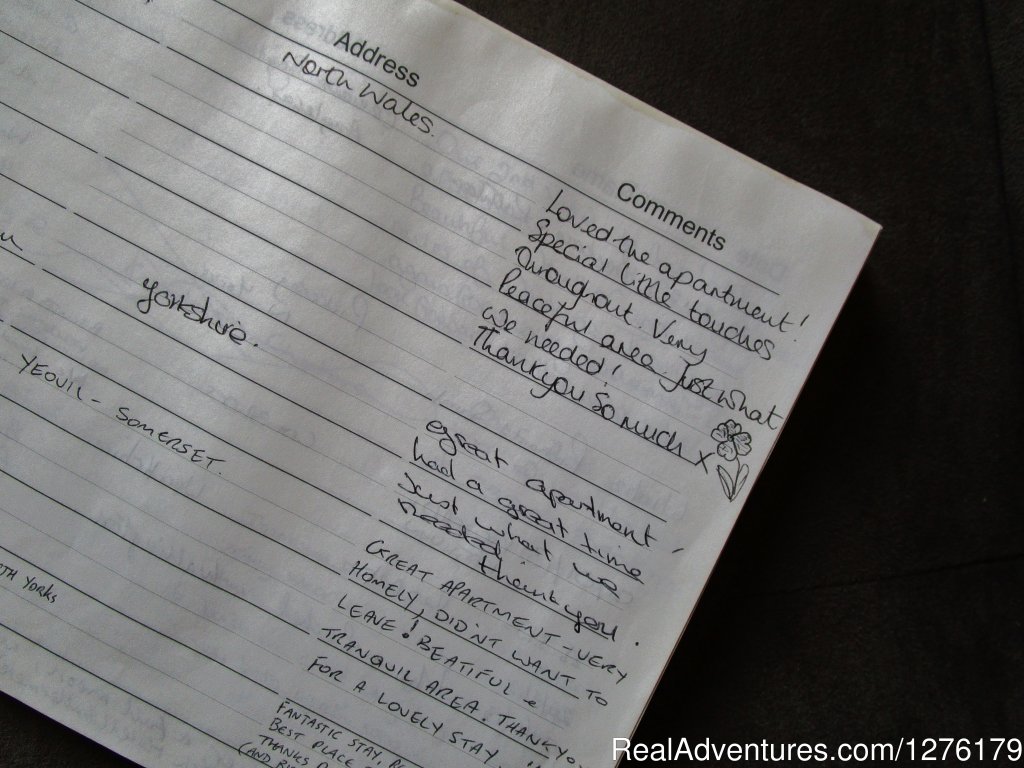 Address
Comments
North Wales.
Loved the apartment!
Special little touches
throughout. Very
Peaceful area Just what
we needed!
Thankyou so much X
Yorkshire.
great apartment,
had a great time
Just what we
needed, thankyou.
YEOVIL - SOMERSET.
GREAT APARTMENT - VERY
HOMELY, DID'NT WANT TO
LEAVE! BEATIFUL &
TRANQUIL AREA. THANKYO
FOR A LOVELY STAY !!
YORKS
FANTASTIC STAY,
BEST PLACE
THANKS
(AND
RealAdventures.com/1276179